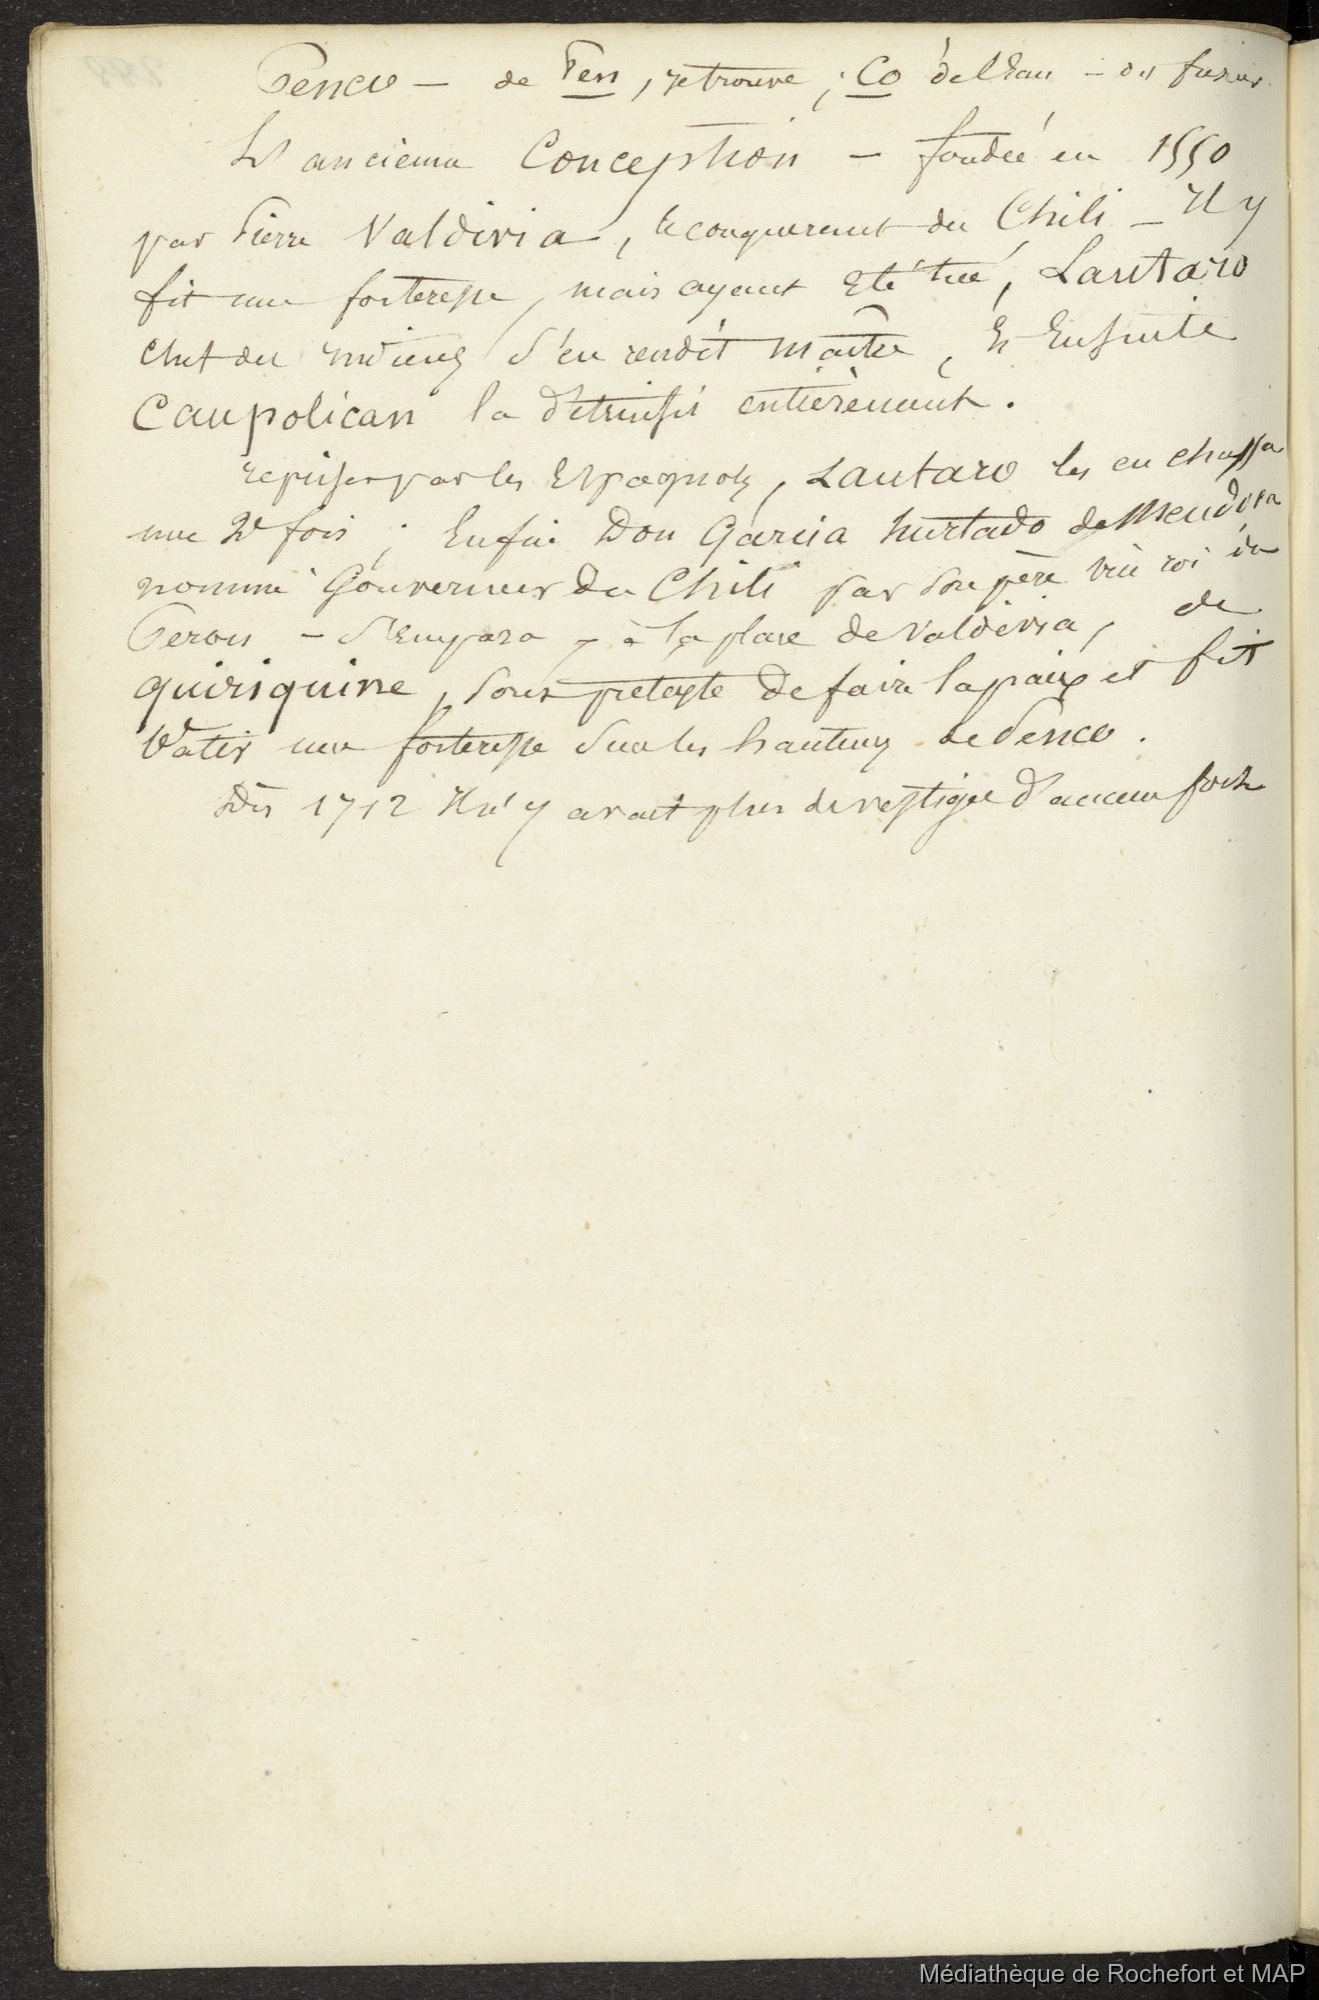 Penco — de Pen, je trouve ; Co de l'eau — de
L'ancienne Conception — fondée en 1550
par Pierre Valdivia, le conquerant du Chili — Il y
fit une forteresse, mais ayant été tué, Lautaro
chef des indiens s'en rendit maître, & Ensuite
Caupolican la détruisit entièrement.
reprise par les Espagnols, Lautaro les en chassa
une 2e fois ; Enfin Don Garcia hurtado de Mendosa
nommé Gouverneur du Chili par son père vice roi du
Perou — s'empara — à la place de Valdivia, de
quiriquine, sous pretexte de faire la paix et fit
batir une forteresse sur les hauteurs de Penco.
Dès 1712 Il n'y avait plus de vestige d'aucun fort
Médiathèque de Rochefort et MAP